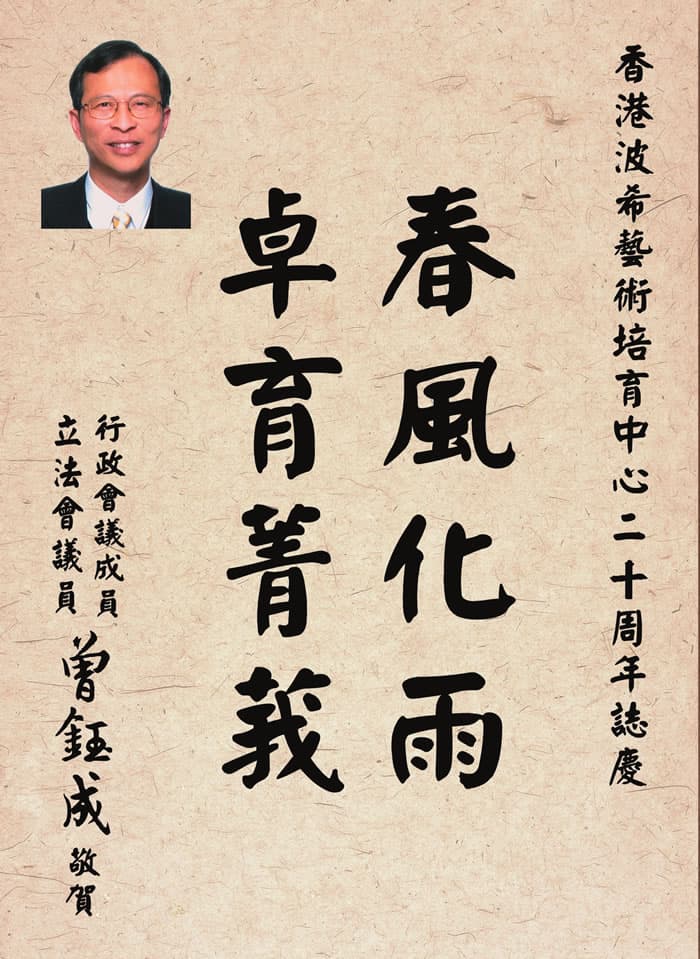 香港波希藝術培育中心二十周年誌慶
春風化雨
卓育菁莪
行政會議成員
立法會議員
曾鈺成敬賀